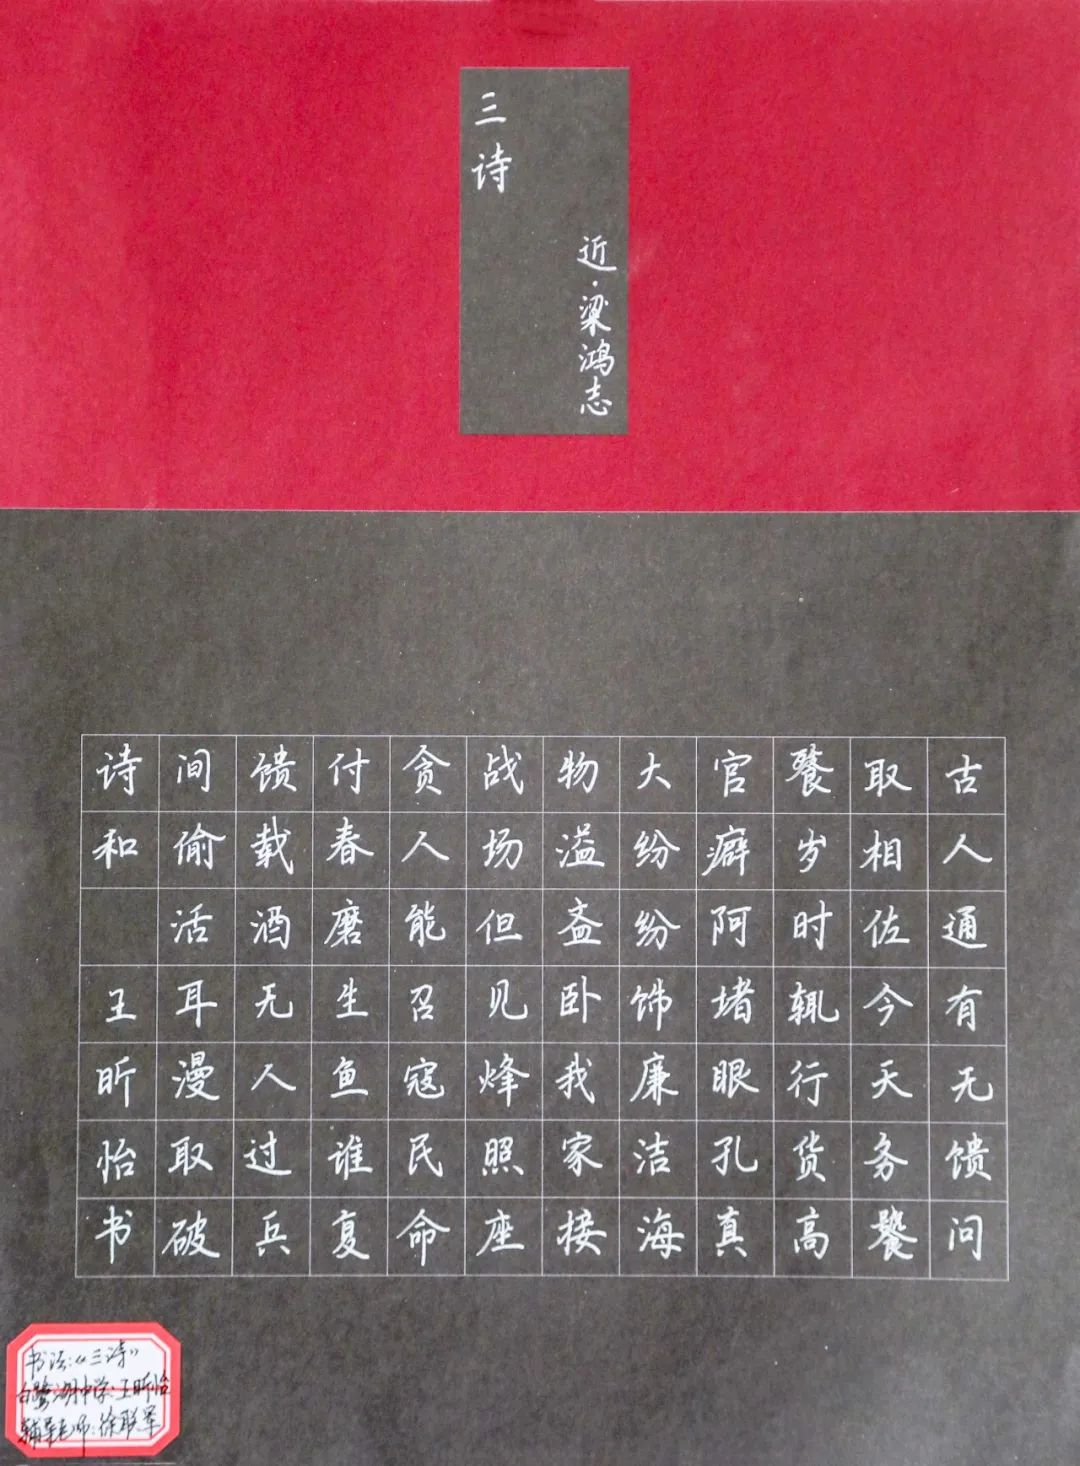 三诗
近·梁鸿志
古人通有无馈问
取相佐今天务饕
餮岁时辄行货高
官癖阿堵眼孔真
大纷纷饰廉洁海
物溢盎卧我家接
战场但见烽照座
贪人能召寇民命
付春磨生鱼谁复
馈载酒无人过兵
间偷活耳漫取破
诗和 王昕怡书
书法:《三诗》
白鹭湖中学:王昕怡
辅导老师:徐联军